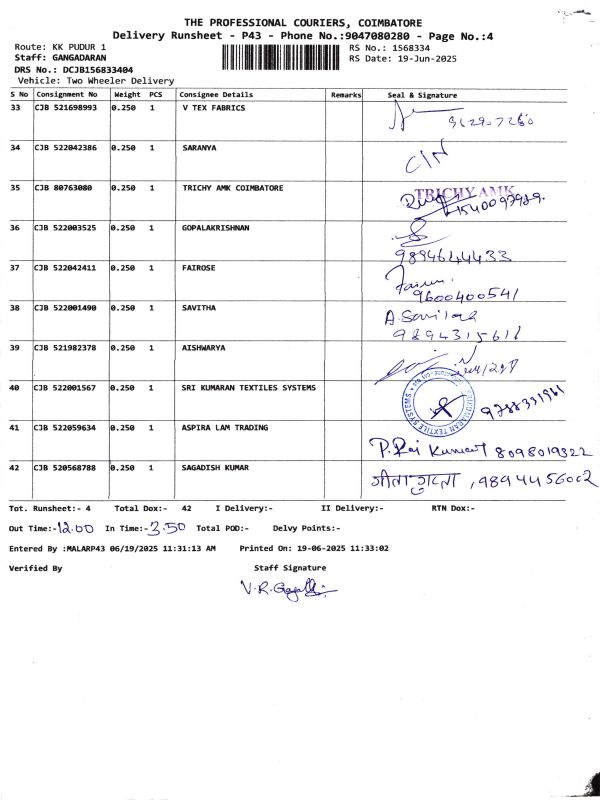 THE PROFESSIONAL COURIERS, COIMBATORE
Delivery Runsheet - P43 - Phone No.:9047080280 - Page No.:4
Route: KK PUDUR 1 RS No.: 1568334
Staff: GANGADARAN RS Date: 19-Jun-2025
DRS No.: DCJB156833404
Vehicle: Two Wheeler Delivery
S No Consignment No Weight PCS Consignee Details Remarks Seal & Signature
33 CJB 521698993 0.250 1 V TEX FABRICS
34 CJB 522042386 0.250 1 SARANYA
35 CJB 80763080 0.250 1 TRICHY AMK COIMBATORE TRICHY AMK
36 CJB 522003525 0.250 1 GOPALAKRISHNAN
9894644433
37 CJB 522042411 0.250 1 FAIROSE
9600400541
38 CJB 522001490 0.250 1 SAVITHA
39 CJB 521982378 0.250 1 AISHWARYA
40 CJB 522001567 0.250 1 SRI KUMARAN TEXTILES SYSTEMS 9788331961
41 CJB 522059634 0.250 1 ASPIRA LAM TRADING
P. Raj Kumar 8098019322
42 CJB 520568788 0.250 1 SAGADISH KUMAR
Tot. Runsheet:- 4 Total Dox:- 42 I Delivery:- II Delivery:- RTN Dox:-
Out Time:-12.00 In Time:-3.50 Total POD:- Delvy Points:-
Entered By :MALARP43 06/19/2025 11:31:13 AM Printed On: 19-06-2025 11:33:02
Verified By Staff Signature